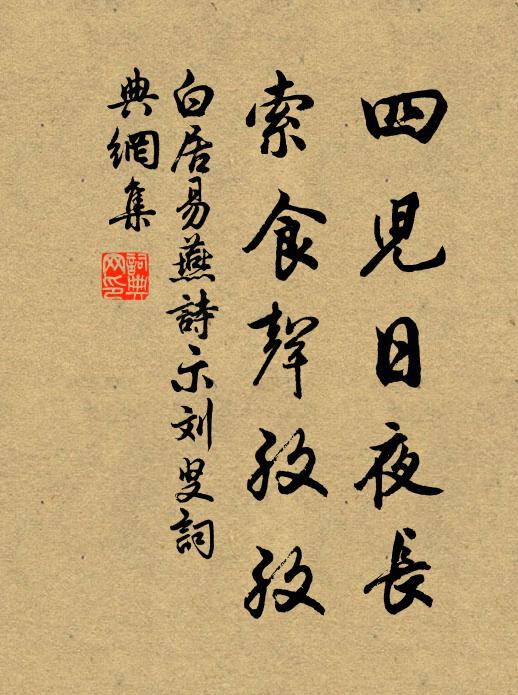 四児日夜長
索食聲孜孜
白居易燕詩示刘叟詞
典網集
詞典网印